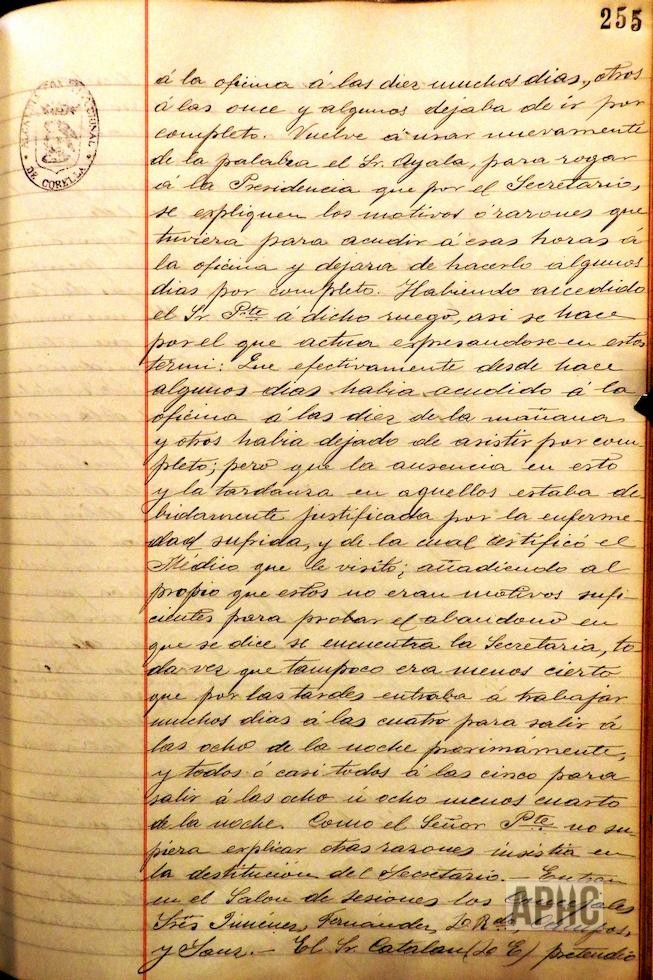 255
ALCALDIA CONSTITUCIONAL
DE CORELLA
á la oficina á las diez muchos dias, otros
á las once y algunos dejaba de ir por
completo. Vuelve á usar nuevamente
de la palabra el Sr. Ayala, para rogar
á la Presidencia que por el Secretario,
se expliquen los motivos ó razones que
tuviera para acudir á esas horas á
la oficina y dejara de hacerlo algunos
dias por completo. Habiendo accedido
el Sr. Pte. á dicho ruego, asi se hace
por el que actua expresandose en estos
termi: Que efectivamente desde hace
algunos dias habia acudido á la
oficina á las diez de la mañana
y otros habia dejado de asistir por com
pleto; pero que la ausencia en esto
y la tardanza en aquellos estaba de
bidamente justificada por la enferme-
dad sufrida, y de la cual certificó el
Médico que le visitó; añadiendo al
propio que estos no eran motivos sufi-
cientes para probar el abandono en
que se dice se encuentra la Secretaria, to-
da vez que tampoco era menos cierto
que por las tardes entraba á trabajar
muchos dias á las cuatro para salir á
las ocho de la noche proximámente,
y todos ó casi todos á las cinco para
salir á las ocho ú ocho menos cuarto
de la noche. Como el Señor Pte. no su-
piera explicar otras razones insistia en
la destitución del Secretario. — Entran
en el Salon de sesiones los Concejales
Sres Jiménez, Fernández,
y Sanz. — El Sr. Catalan (Lo E) pretendio
APHC